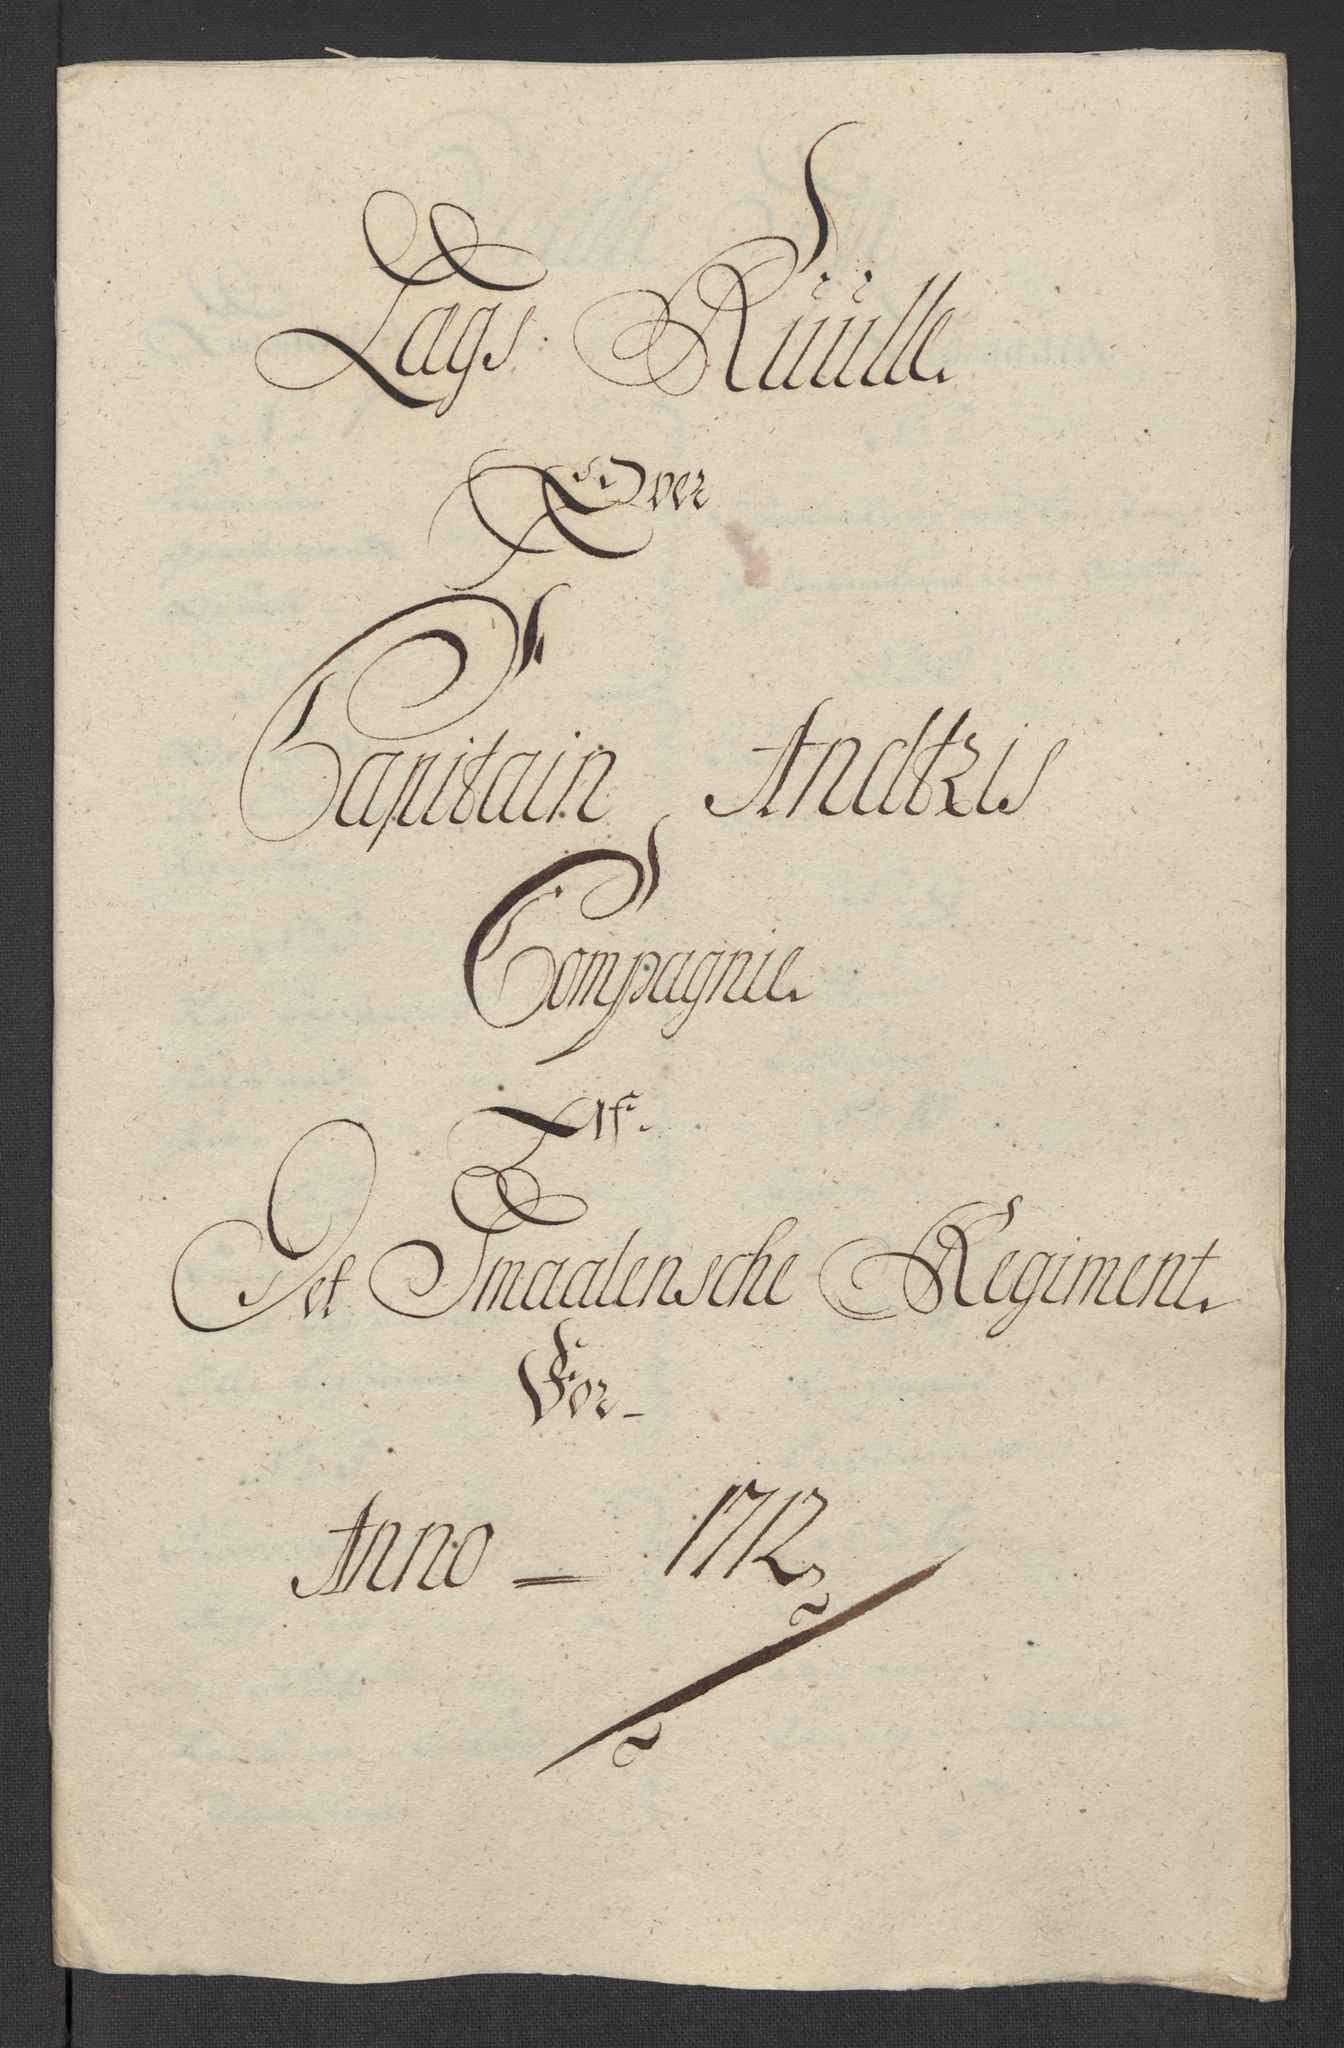 Lags Rüülle
Over
Capitain Andtzis
Compagnie.
Af.
Det Smaalensche Regiment.
For
Anno = 1712